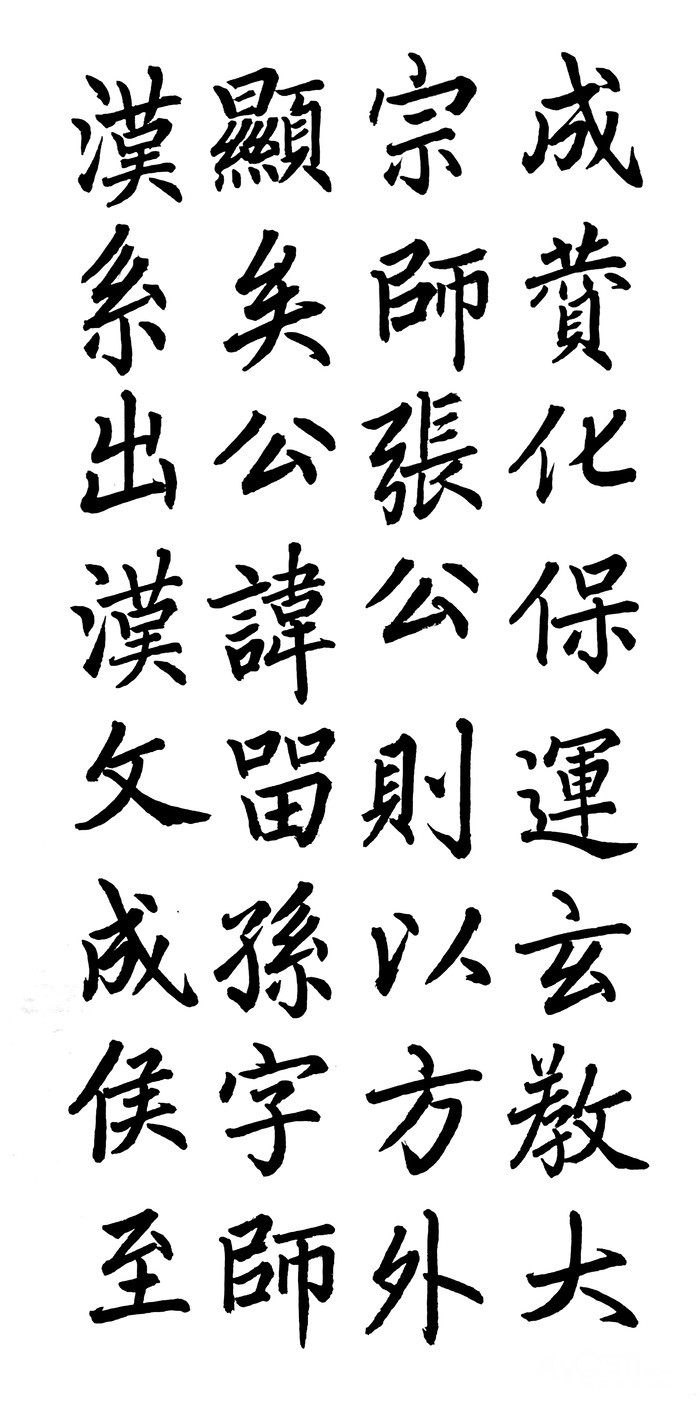 成賛化保運玄教大
宗師張公則以方外
顯矣公諱留孫字師
漢系出漢文成侯至